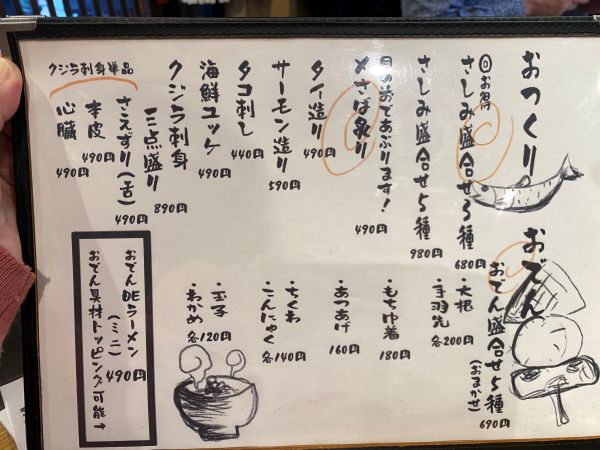 おつくり
お得
さしみ盛合せ3種
680円
さしみ盛合せ5種
980円
目の前であぶります!
〆さば炙り
490円
タイ造り
490円
サーモン造り
590円
タコ刺し
440円
海鮮ユッケ
490円
クジラ刺身
三点盛り
890円
クジラ刺身単品
さえずり(舌)
490円
本皮
490円
心臓
490円
おでん
おでん盛合せ5種
(おまかせ)
690円
・大根
・手羽先
各200円
・もちゆ着
180円
・あつあげ
160円
・ちくわ
・こんにゃく
各140円
・玉子
・わかめ
各120円
おでんDEラーメン
(ミニ)
490円
おでん具材トッピング可能→